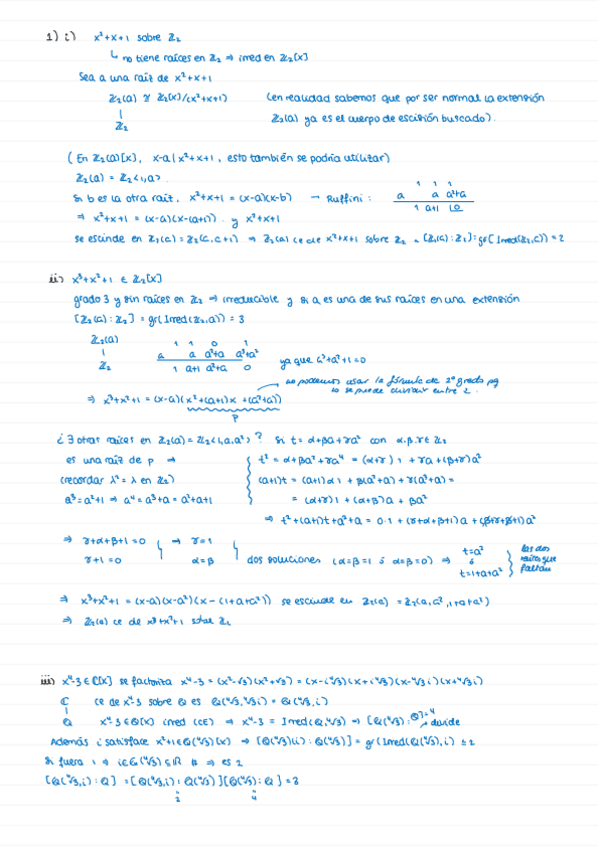 1) i) x²+x+1 sobre ℤ₂
↳ no tiene raíces en ℤ₂ ⇒ irred en ℤ₂[x]
Sea a una raíz de x²+x+1
ℤ₂(a) ≅ ℤ₂[x]/(x²+x+1) (en realidad sabemos que por ser normal la extensión
| ℤ₂(a) ya es el cuerpo de escisión buscado).
ℤ₂
(En ℤ₂(a)[x], x-a | x²+x+1, esto también se podría utilizar)
ℤ₂(a) = ℤ₂<1,a>
Si b es la otra raíz, x²+x+1 = (x-a)(x-b) → Ruffini:
1 1 1
a a a²+a
1 a+1 0
⇒ x²+x+1 = (x-a)(x-(a+1)) y x²+x+1
se escinde en ℤ₂(a) = ℤ₂(a, a+1) ⇒ ℤ₂(a) ce de x²+x+1 sobre ℤ₂ [ℤ₂(a):ℤ₂] = gr(Irred(ℤ₂,a)) = 2
ii) x³+x²+1 ∈ ℤ₂[x]
grado 3 y sin raíces en ℤ₂ ⇒ irreducible y si a es una de sus raíces en una extensión
[ℤ₂(a):ℤ₂] = gr(Irred(ℤ₂,a)) = 3
ℤ₂(a)
|
ℤ₂
1 1 0 1
a a a²+a a³+a²
1 a+1 a²+a 0
ya que a³+a²+1=0
no podemos usar la fórmula de 2º grado pq
no se puede dividir entre 2.
⇒ x³+x²+1 = (x-a)(x²+(a+1)x+(a²+a))
p
¿∃ otras raíces en ℤ₂(a) = ℤ₂<1,a,a²>? Si t = α+βa+γa² con α,β,γ∈ ℤ₂
es una raíz de p ⇒ t² = α+βa²+γa⁴ = (α+γ)1 + γa + (β+γ)a²
(recordar λ²=λ en ℤ₂) (a+1)t = (a+1)α1 + β(a²+a) + γ(a³+a²) =
a³=a²+1 ⇒ a⁴=a³+a=a²+a+1 = (α+γ)1 + (α+β)a + βa²
⇒ t²+(a+1)t+a²+a = 0·1 + (γ+α+β+1)a + (β+γ+β+1)a²
⇒ γ+α+β+1=0 → γ=1
γ+1=0 α=β dos soluciones (α=β=1 ó α=β=0) ⇒ t=a²
ó
t=1+a+a²
las dos
raíces que
faltan
⇒ x³+x²+1 = (x-a)(x-a²)(x-(1+a+a²)) se escinde en ℤ₂(a) = ℤ₂(a,a²,1+a+a²)
⇒ ℤ₂(a) ce de x³+x²+1 sobre ℤ₂
iii) x⁴-3∈ℂ[x] se factoriza x⁴-3 = (x²-√3)(x²+√3) = (x-⁴√3)(x+⁴√3)(x-⁴√3 i)(x+⁴√3 i)
ℂ ce de x⁴-3 sobre ℚ es ℚ(⁴√3,⁴√3i) = ℚ(⁴√3,i)
|
ℚ x⁴-3∈ℚ[x] irred (CE) ⇒ x⁴-3 = Irred(ℚ,⁴√3) ⇒ [ℚ(⁴√3):ℚ]=4
divide
Además i satisface x²+1∈ℚ(⁴√3)[x] ⇒ [ℚ(⁴√3)(i):ℚ(⁴√3)] = gr(Irred(ℚ(⁴√3),i) ≤ 2
Si fuera 1 ⇒ i∈ℚ(⁴√3)⊆ℝ # ⇒ es 2
[ℚ(⁴√3,i):ℚ] = [ℚ(⁴√3,i):ℚ(⁴√3)][ℚ(⁴√3):ℚ] = 8
2 4